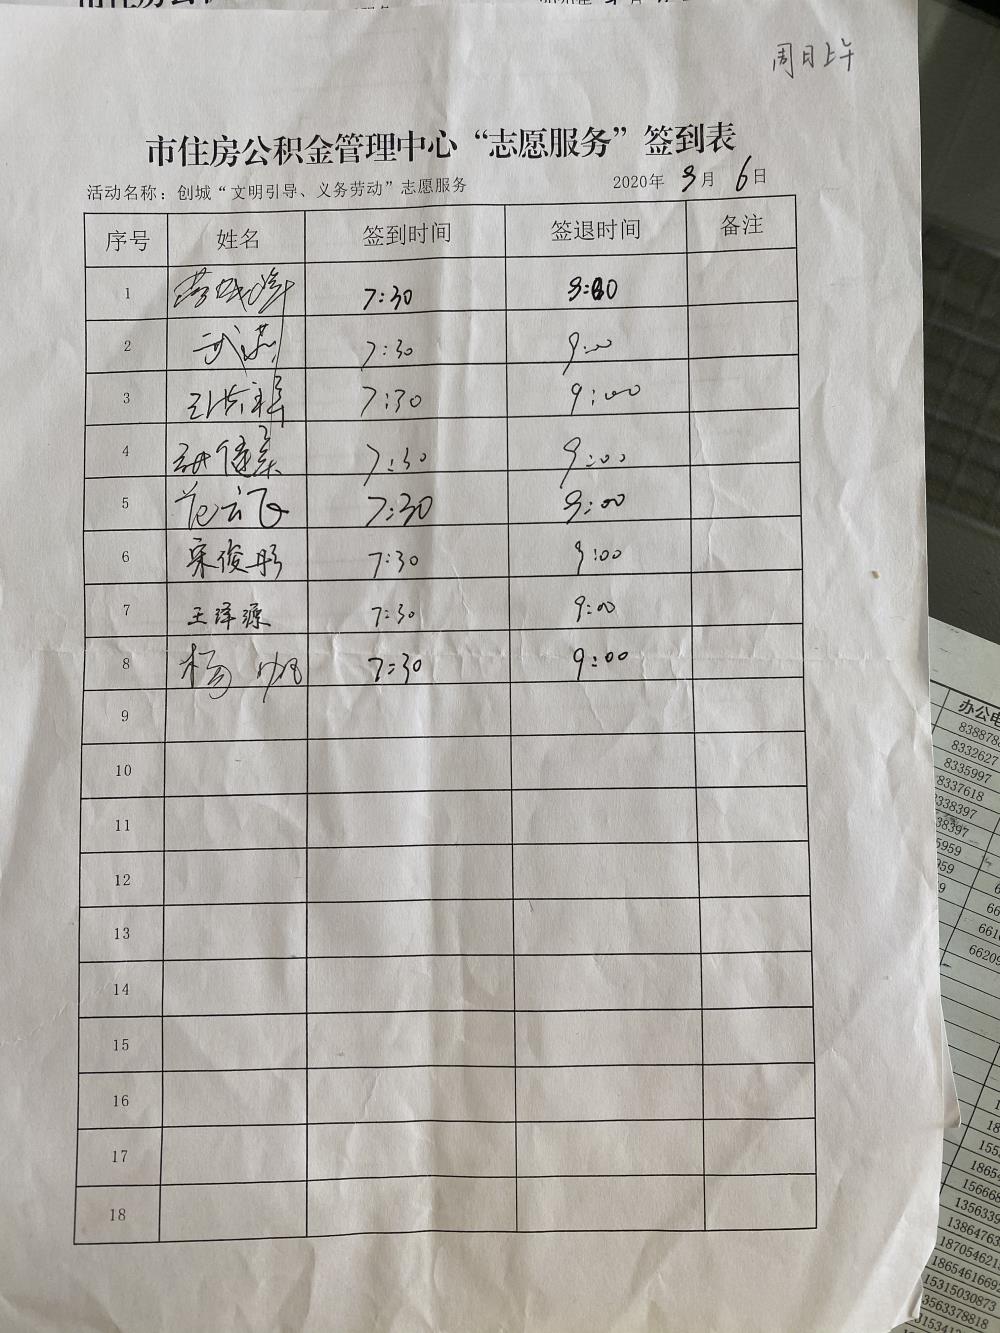 周日上午
市住房公积金管理中心“志愿服务”签到表
活动名称：创城“文明引导、义务劳动”志愿服务 2020年 9月 6日
序号 姓名 签到时间 签退时间 备注
1 7:30 9:00
2 武 7:30 9:00
3 7:30 9:00
4 7:30 9:00
5 范云飞 7:30 9:00
6 宋俊彤 7:30 9:00
7 王泽源 7:30 9:00
8 杨帆 7:30 9:00
9
10
11
12
13
14
15
16
17
18
办公电
838878
8332627
8335997
8337618
338397
38397
5959
959
9
6
66
661
66209
1
18
155
1865
15666
1356339
1386476
1870546
186546166
15315030873
3563378818